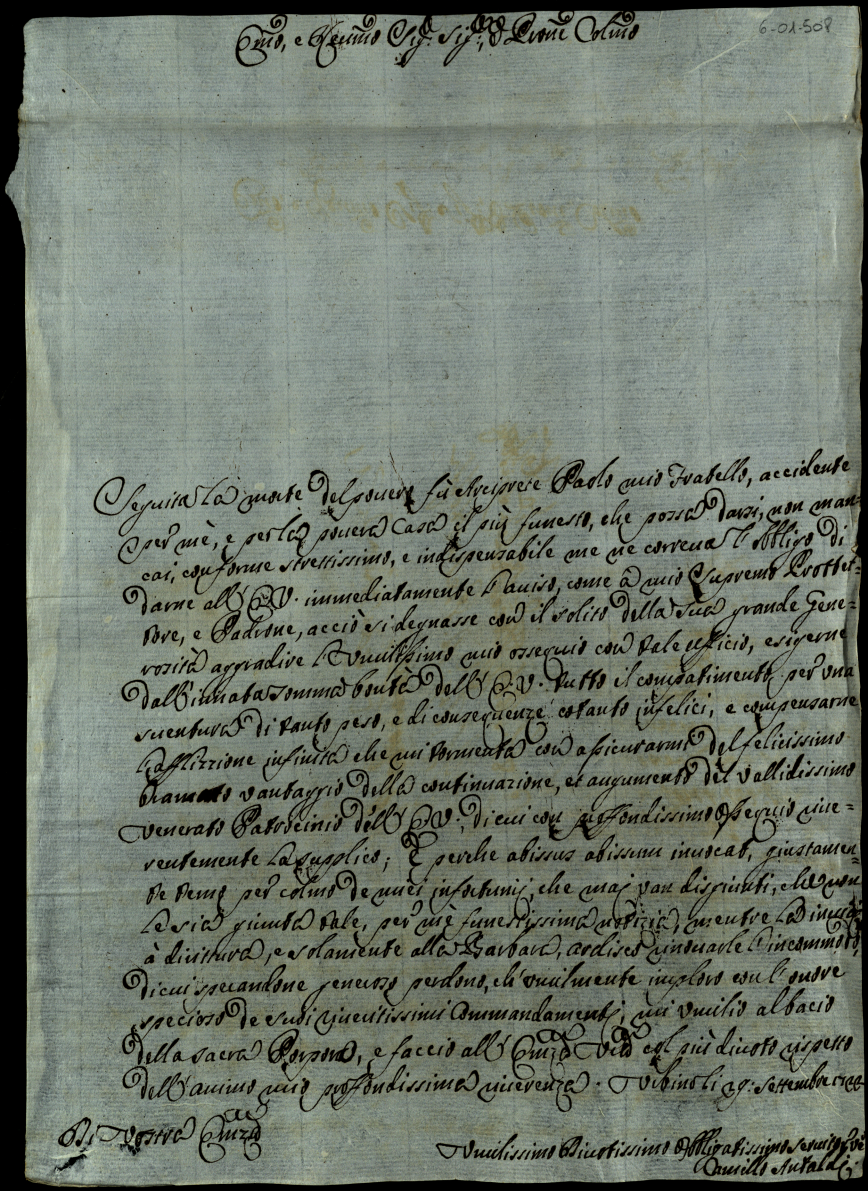 6-01-508
Emo, e Remo Sig: Sig:, e Prone Colmo
Seguita la morte del povero fù Arciprete Paolo mio Fratello, accidente
per mè, e per la povera Casa il più funesto, che possa darsi, non man=
cai, conforme strettissimo, e indispensabile me ne correva l'obbligo di
darne all' E.V. immediatamente l'auiso, come à mio Supremo Prottet=
tore, e Padrone, acciò si degnasse con il solito della sua grande Gene=
rosità aggradire l'vmilissimo mio ossequio con tale ufficio, esigerne
dall'innata somma bontà dell' E.V. tutto il compatimento per vna
suentura di tanto peso, e di conseguenze cotanto infelici, e compensarne
l'afflizzione infinita che mi tormenta con assicurarmi del felicissimo
bramato vantaggio della continuazione, et augumento del vallidissimo
venerato Patrocinio dell' E.V., di cui con proffondissimo ossequio rive=
rentemente la supplico; E perche abissus abissum inuocat, giustamen=
te temo per colmo de miei infortunij, che maj van disgiunti, che non
le sia giunta tale, per mè funestissima notizia, mentre la inuiai
à dirittura, e solamente alla Barbara, ardisco rinouarle l'incommodo,
di cui sperandone generoso perdono, ch' vmilmente imploro con l'onore
specioso de suoi riueritissimi Commandamentj, mi vmilio al bacio
della sacra Porpora, e faccio all' Emza Vra col più diuoto rispetto
dell'animo mio proffondissima riuerenza. Vrbino li 29: Settembre
Di Vostra Emza
Vmilissimo Diuotissimo Obbligatissimo Seruitore
Camillo Antaldi